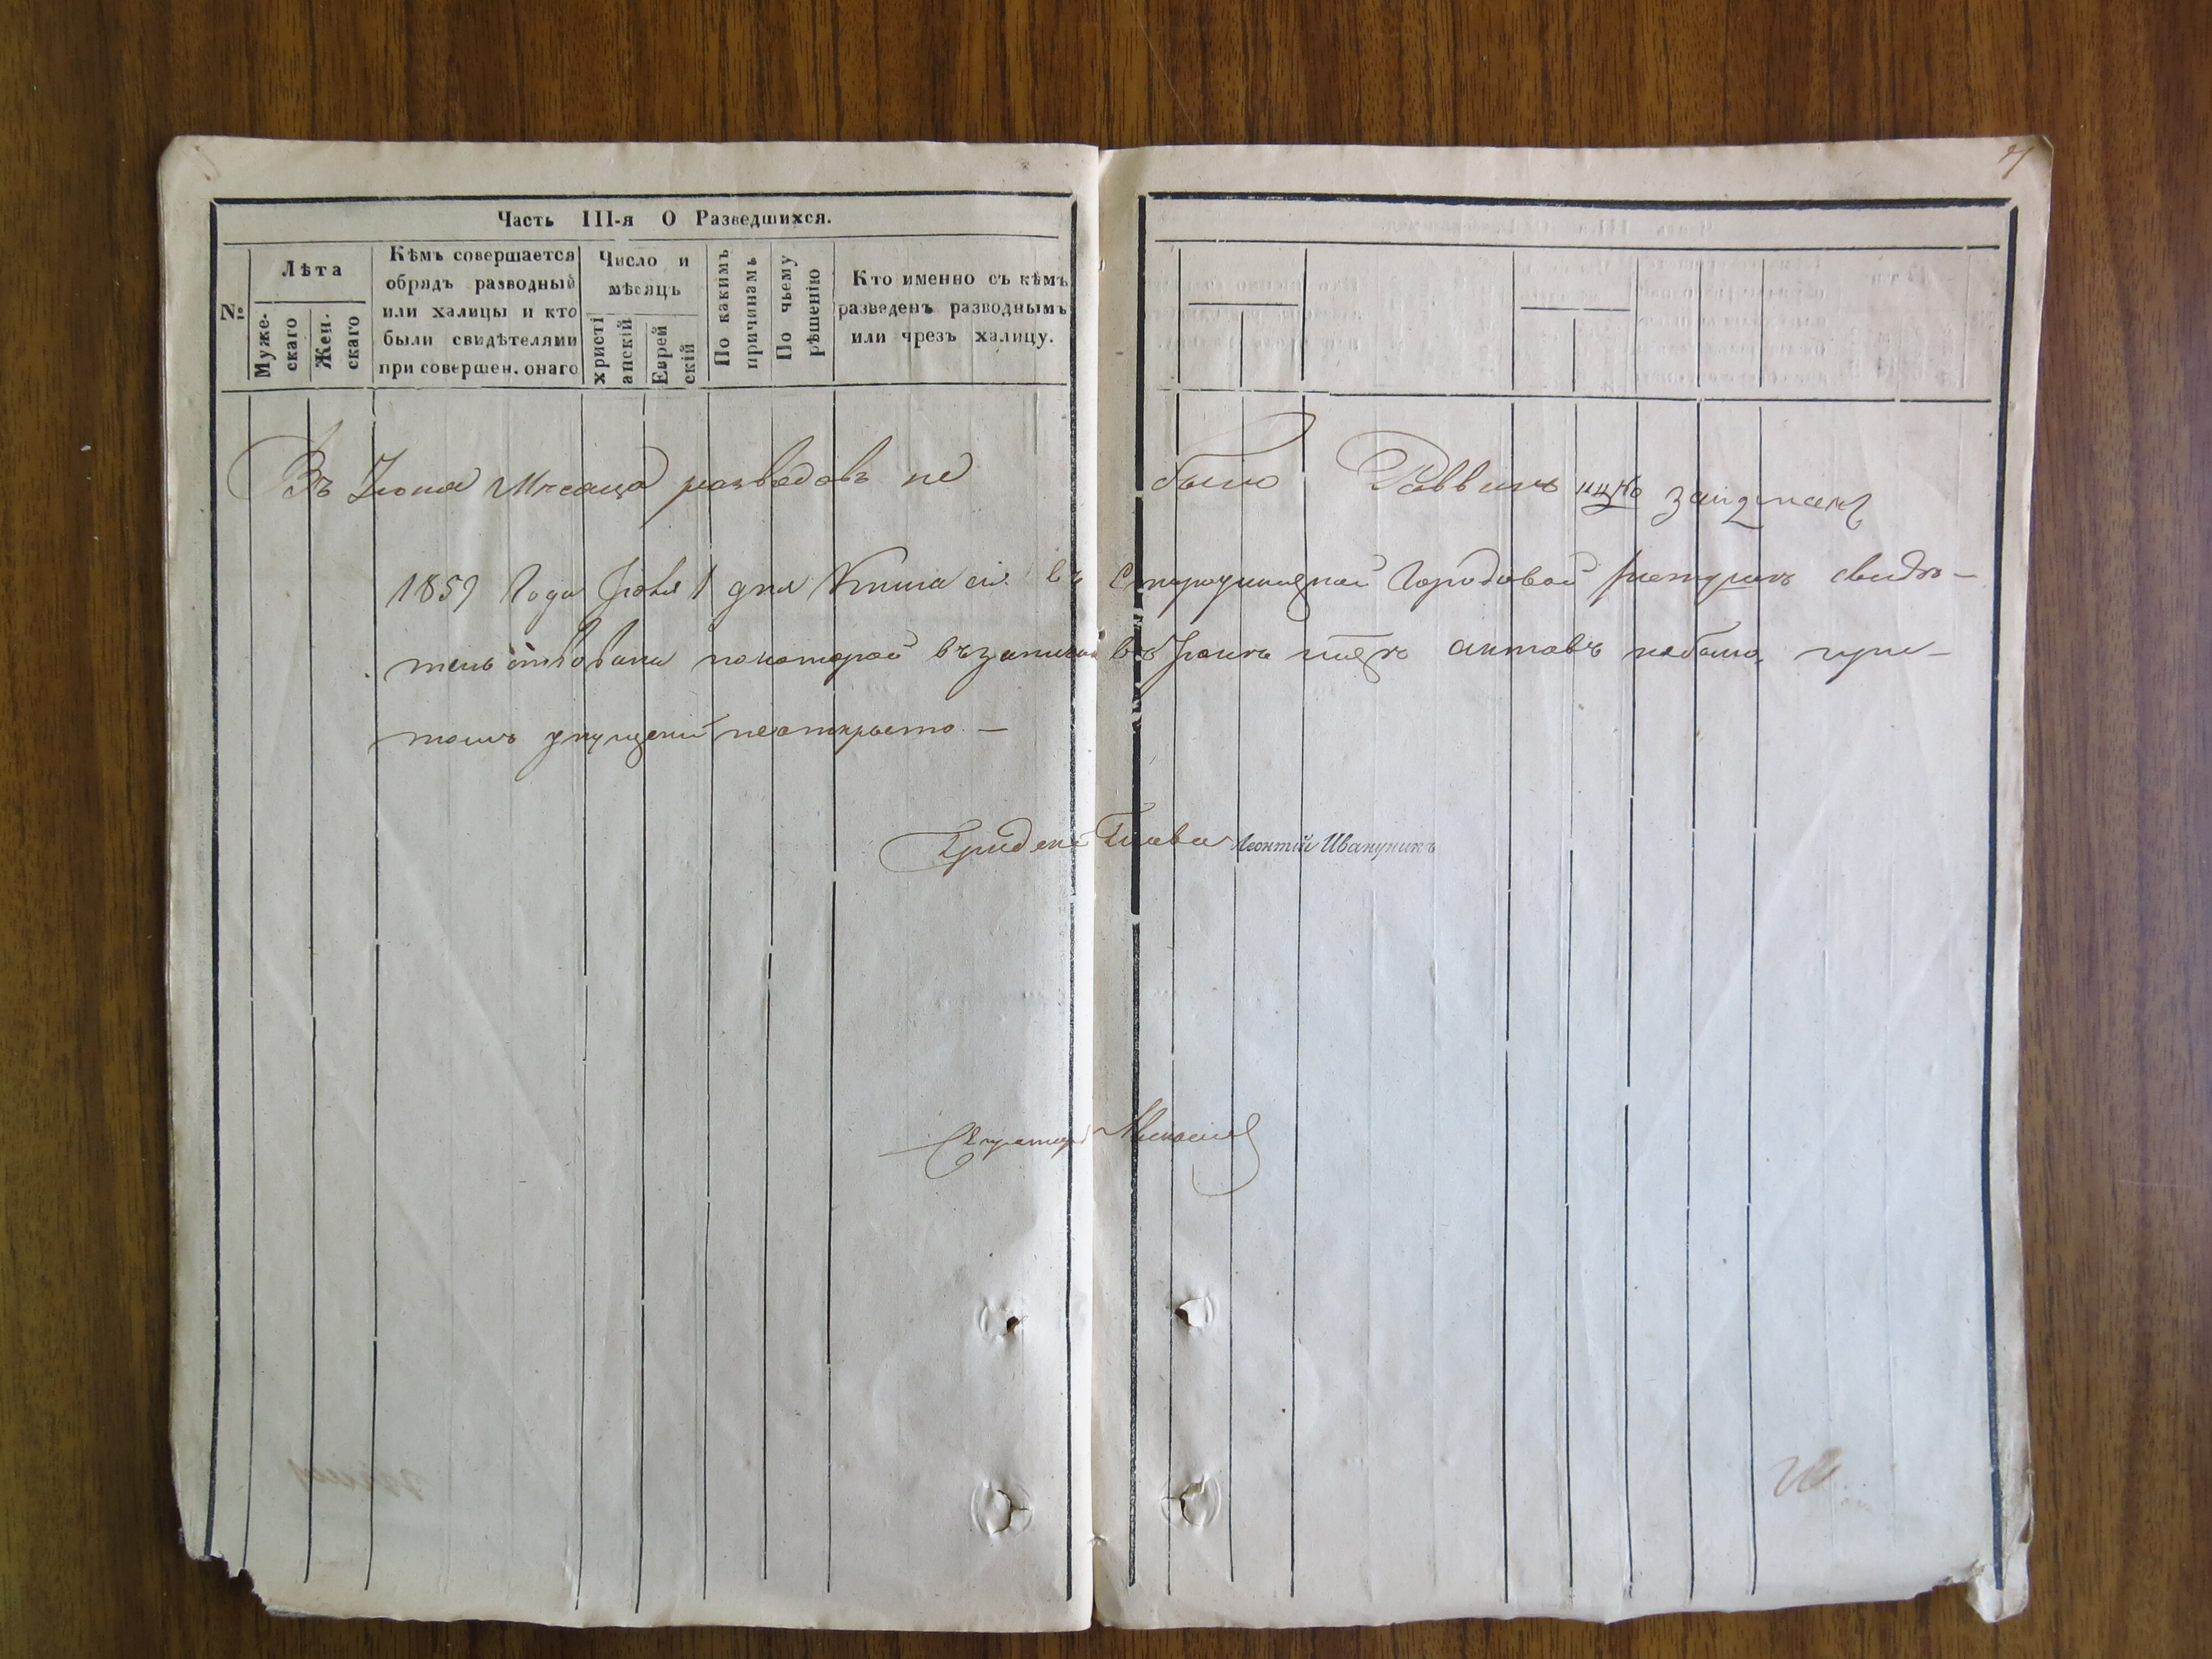 Часть III-я О Разведшихся.
№
Лѣта
Муже-
скаго
Жен.
скаго
Кѣмъ совершается
обрядъ разводный
или халицы и кто
были свидѣтелями
при совершен. онаго
Число и
мѣсяцъ
христі
анскій
Еврей
скій
По какимъ
причинамъ
По чьему
рѣшенію
Кто именно съ кѣмъ
разведенъ разводнымъ
или чрезъ халицу.
Въ Іюна Месаца разводовъ не было Раввинъ Зайдман
1859 Года Іюля 1 дня Книга сія въ Городовой ратушѣ свидѣ-
тельствована по которой въ записки въ Іюнѣ актовъ небыло, при-
томъ упущеній неоткрыто. —
Леонтій Иванчукъ
Секретарь